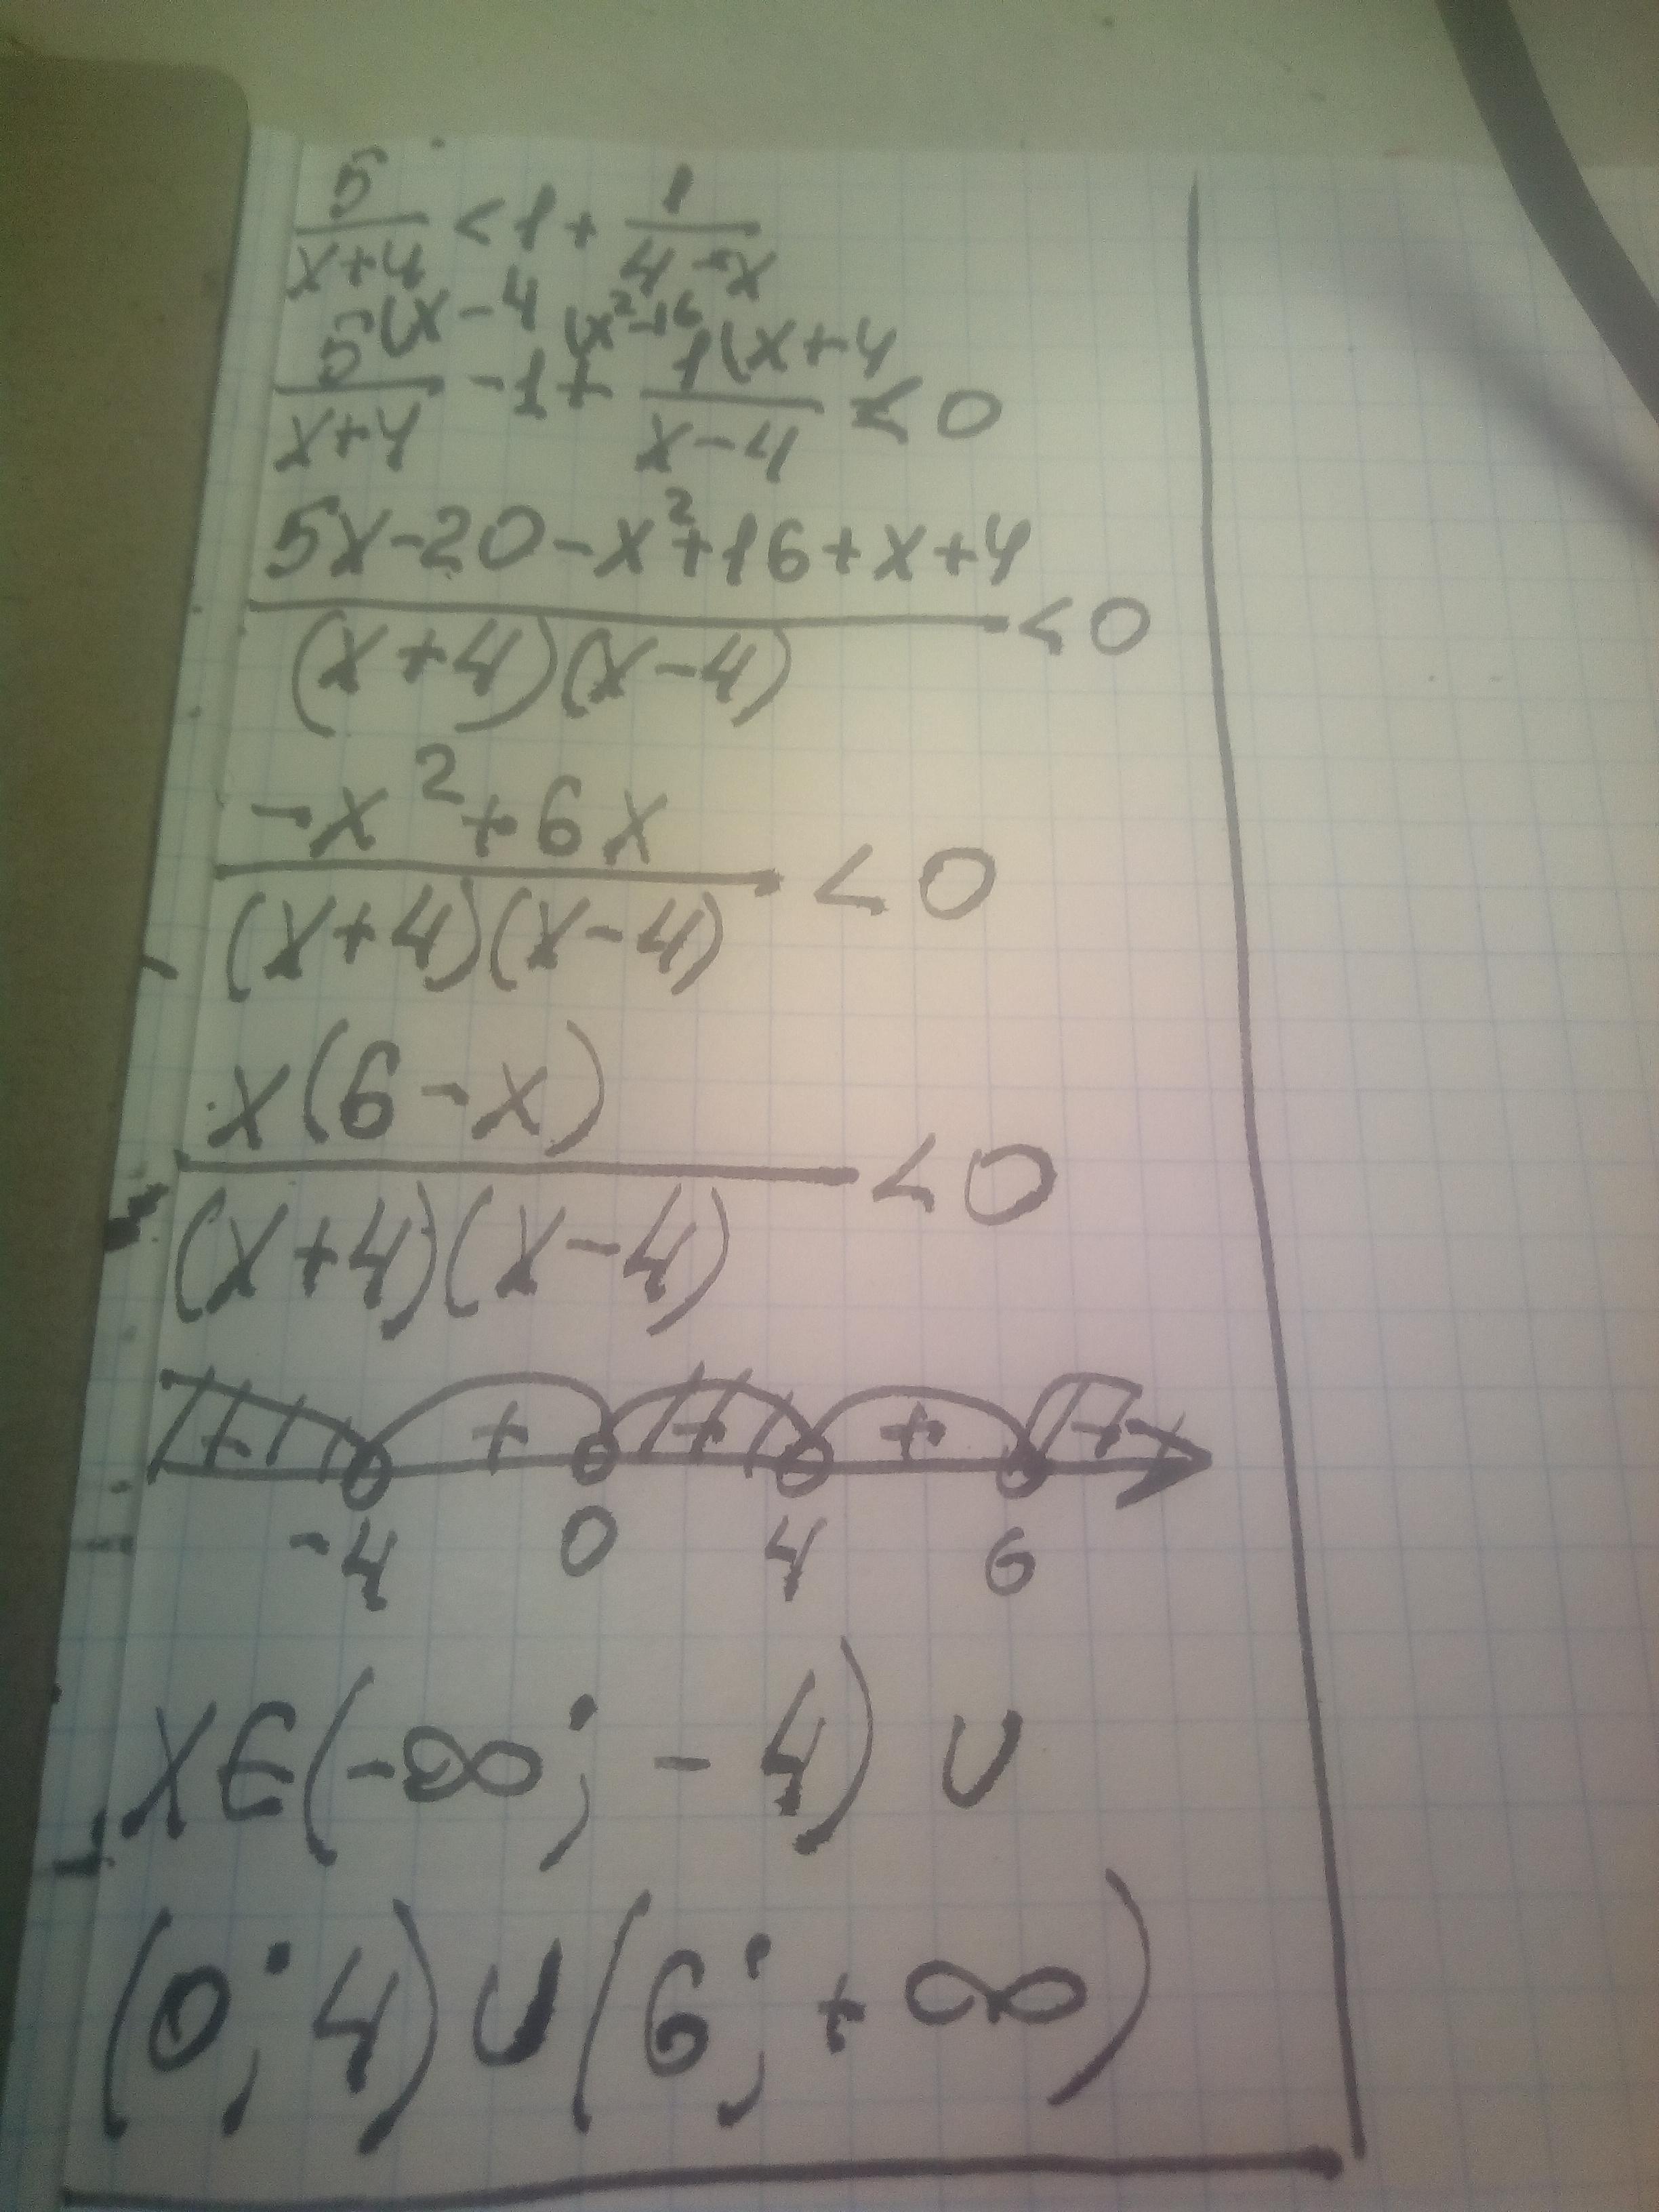 5/(x+4) < 1 + 1/(4-x)
5(x-4/(x+4) - 1(x²-16 + 1(x+4/(x-4) < 0
(5x-20-x²+16+x+4)/((x+4)(x-4)) < 0
(-x²+6x)/((x+4)(x-4)) < 0
x(6-x)/((x+4)(x-4)) < 0
- + - + -
-4 0 4 6
x∈(-∞;-4)∪
(0;4)∪(6;+∞)